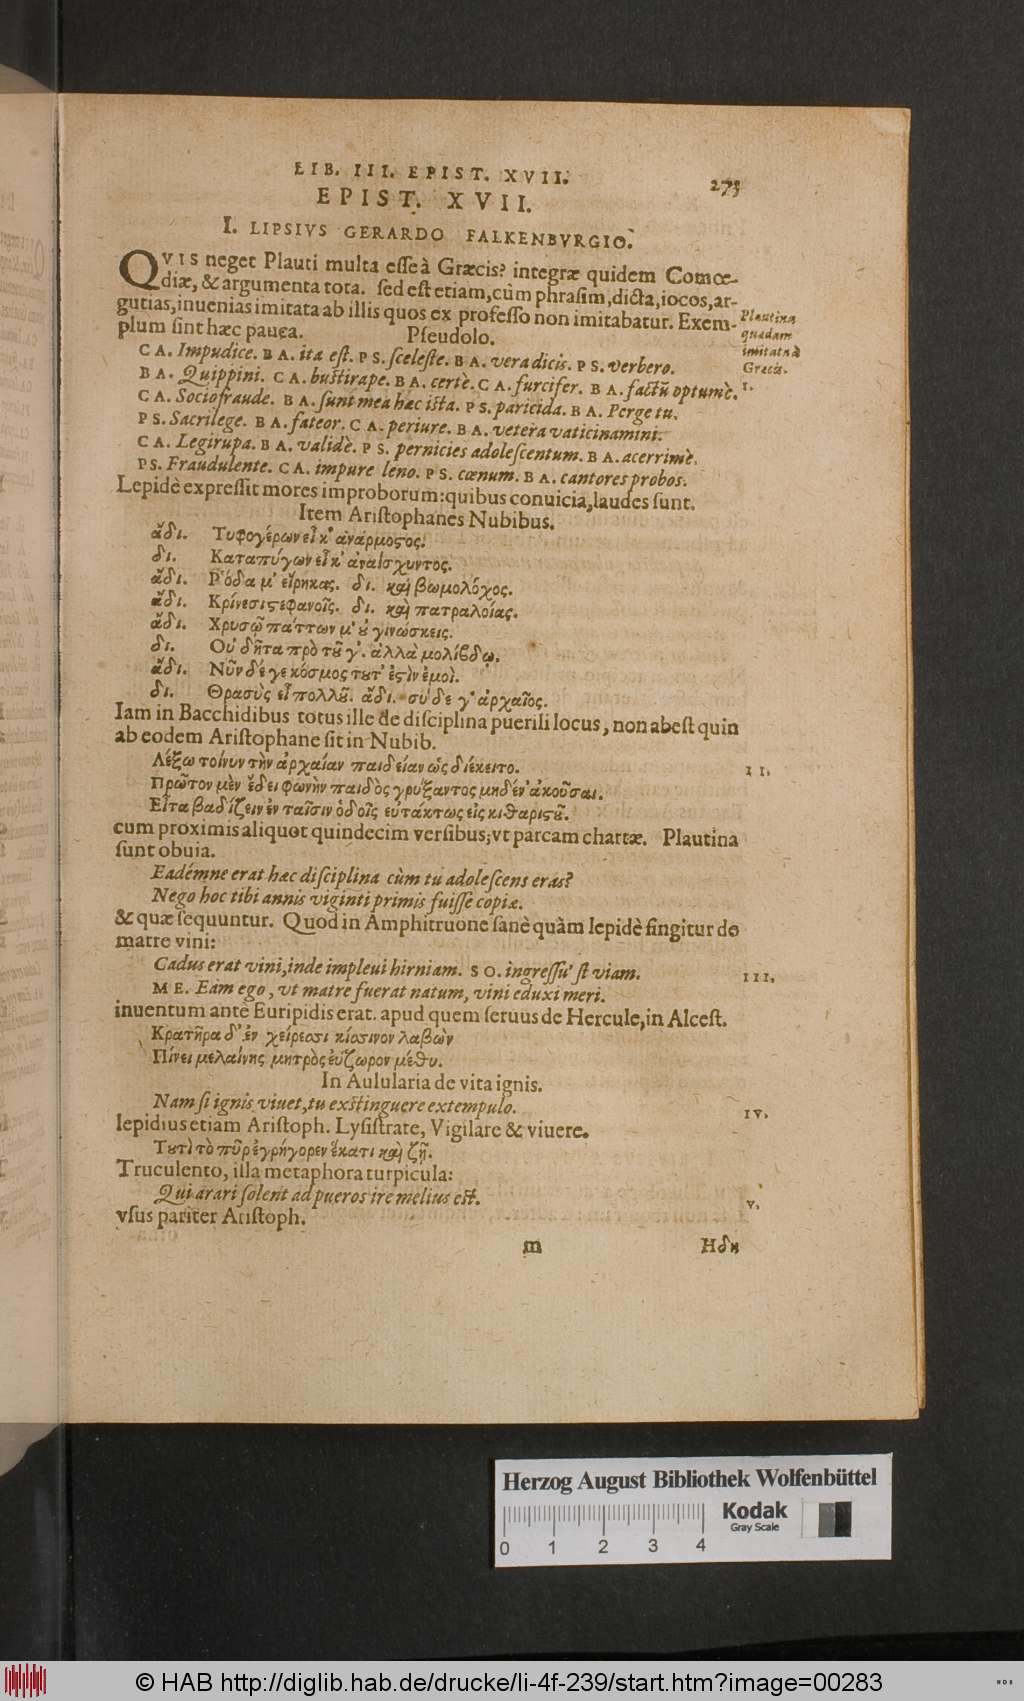 LIB. III. EPIST. XVII. 273
EPIST. XVII.
I. LIPSIVS GERARDO FALKENBVRGIO.
QVIS neget Plauti multa esse à Græcis? integræ quidem Comœ-
diæ, & argumenta tota. sed est etiam, cùm phrasim, dicta, iocos, ar-
gutias, inuenias imitata ab illis quos ex professo non imitabatur. Exem-
plum sint hæc pauca. Pseudolo.
Plautina
quædam
imitatæ à
Græcis.
I.
CA. Impudice. BA. ita est. PS. sceleste. BA. vera dicis. PS. verbero.
BA. Quippini. CA. bustirape. BA. certè. CA. furcifer. BA. factũ optumè.
CA. Sociofraude. BA. sunt mea hæc ista. PS. paricida. BA. Perge tu.
PS. Sacrilege. BA. fateor. CA. periure. BA. vetera vaticinamini.
CA. Legirupa. BA. validè. PS. pernicies adolescentum. BA. acerrimè.
PS. Fraudulente. CA. impure leno. PS. cœnum. BA. cantores probos.
Lepidè expressit mores improborum: quibus conuicia, laudes sunt.
Item Aristophanes Nubibus.
ἄδι. Τυφογέρων εἶ κ' ἀνάρμοστος.
δι. Καταπύγων εἶ κ' ἀναίσχυντος.
ἄδι. Ῥόδα μ' εἴρηκας. δι. καὶ βωμολόχος.
ἄδι. Κρίνεσι στεφανοῖς. δι. καὶ πατραλοίας.
ἄδι. Χρυσῷ πάττων μ' οὐ γινώσκεις.
δι. Οὐ δῆτα πρὸ τοῦ γ'. ἀλλὰ μολίβδῳ.
ἄδι. Νῦν δέ γε κόσμος τοῦτ' ἐστὶν ἐμοί.
δι. Θρασὺς εἶ πολλοῦ. ἄδι. σὺ δέ γ' ἀρχαῖος.
Iam in Bacchidibus totus ille de disciplina puerili locus, non abest quin
ab eodem Aristophane sit in Nubib.
Λέξω τοίνυν τὴν ἀρχαίαν παιδείαν ὡς διέκειτο. II.
Πρῶτον μὲν ἔδει φωνὴν παιδὸς γρύξαντος μηδέν' ἀκοῦσαι.
Εἶτα βαδίζειν ἐν ταῖσιν ὁδοῖς εὐτάκτως εἰς κιθαριστοῦ.
cum proximis aliquot quindecim versibus; vt parcam chartæ. Plautina
sunt obuia.
Eadémne erat hæc disciplina cùm tu adolescens eras?
Nego hoc tibi annis viginti primis fuisse copiæ.
& quæ sequuntur. Quod in Amphitruone sanè quàm lepidè fingitur de
matre vini:
Cadus erat vini, inde impleui hirniam. SO. ingressu' st viam. III.
ME. Eam ego, vt matre fuerat natum, vini eduxi meri.
inuentum antè Euripidis erat. apud quem seruus de Hercule, in Alcest.
Κρατῆρα δ' ἐν χείρεσσι κίσσινον λαβὼν
Πίνει μελαίνης μητρὸς εὔζωρον μέθυ.
In Aulularia de vita ignis.
Nam si ignis viuet, tu exstinguere extempulo. IV.
lepidius etiam Aristoph. Lysistrate, Vigilare & viuere.
Τουτὶ τὸ πῦρ ἐγρήγορεν ἕκατι καὶ ζῇ.
Truculento, illa metaphora turpicula:
Qui arari solent ad pueros ire melius est. V.
vsus pariter Aristoph.
m Ηδη
Herzog August Bibliothek Wolfenbüttel
Kodak
Gray Scale
0 1 2 3 4
© HAB http://diglib.hab.de/drucke/li-4f-239/start.htm?image=00283